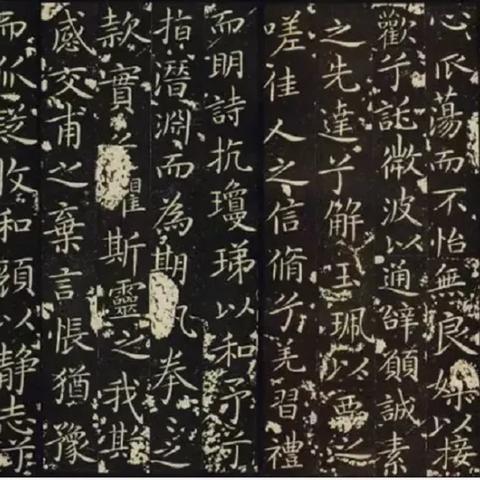 心振蕩而不怡無良媒以接
歡兮託微波以通辭願誠素
之先達兮解玉珮以要之
嗟佳人之信脩兮羌習禮
而明詩抗瓊珶以和予兮
指潛淵而為期執拳〻之
款實兮懼斯靈之我欺
感交甫之棄言悵猶豫
而狐疑收和顏以静志兮